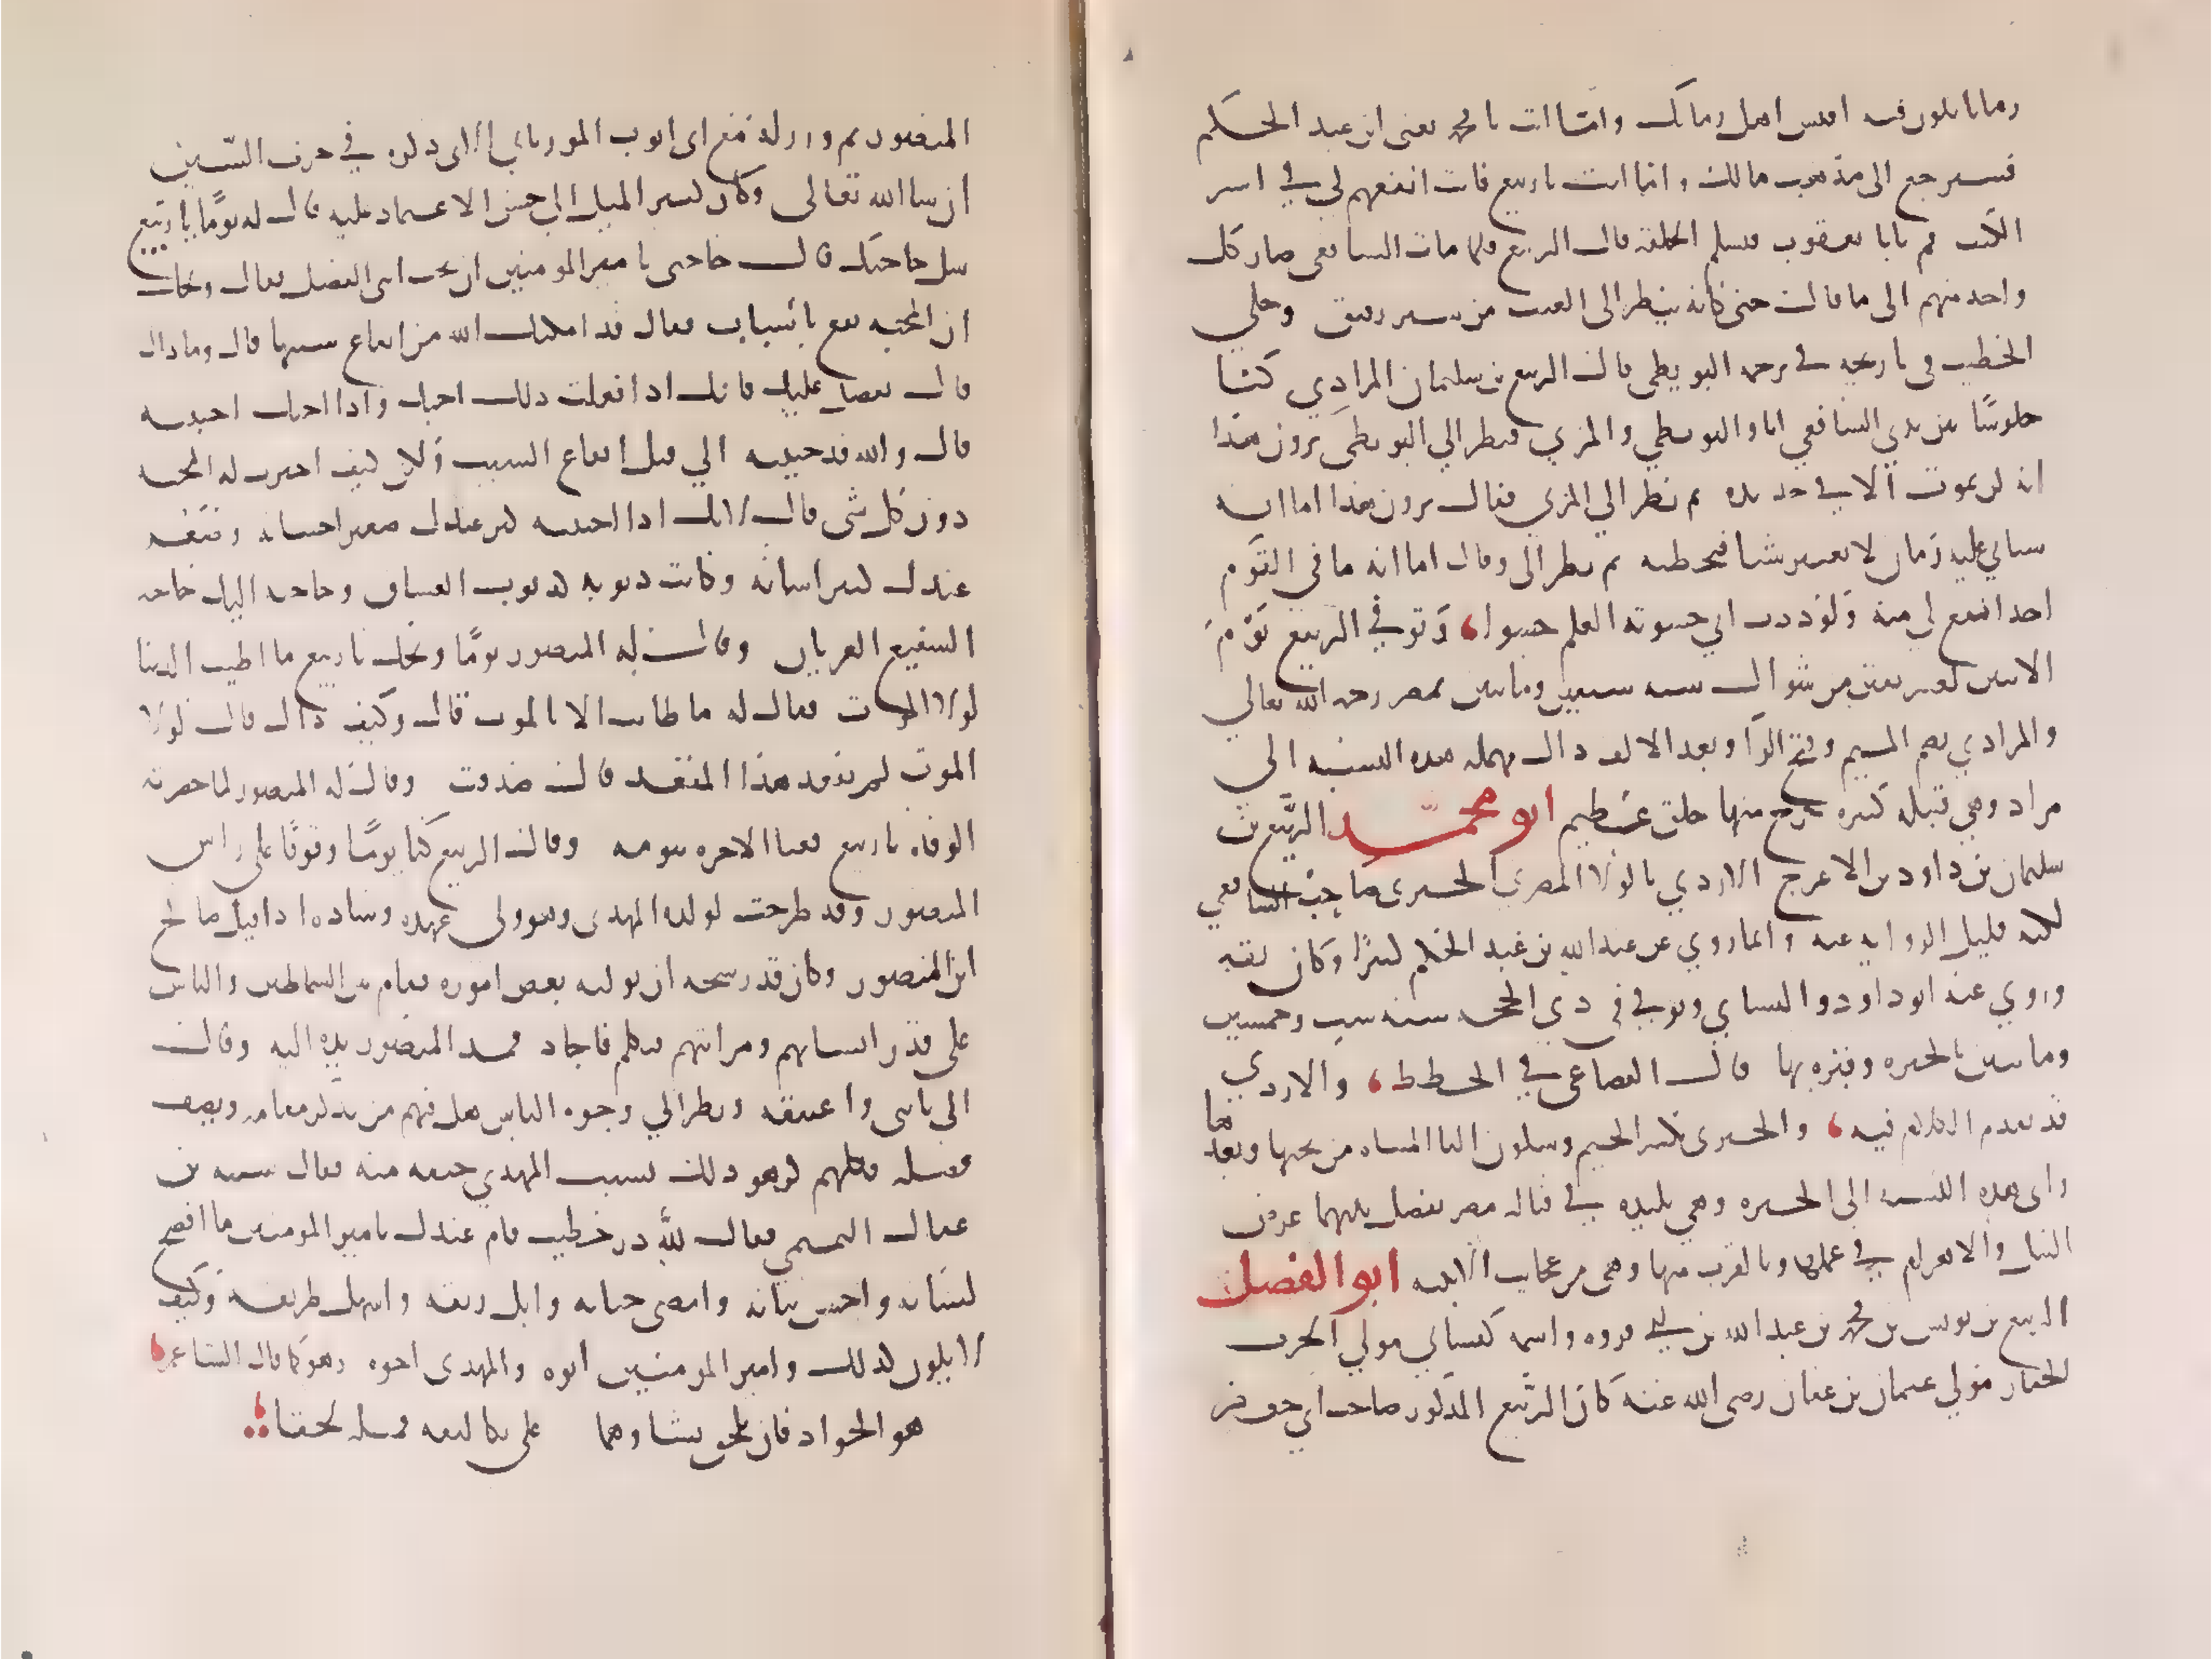 زمانا يكون فيه اقيس اهل زمانك واما انت يا محمد يعني ابن عبد الحكم
فسيرجع الى مذهب مالك واما انت يا ربيع فانت انفعهم لي في نشر
الكتب قم يا ابا يعقوب فتسلم الحلقة قال الربيع فلما مات الشافعي صار كل
واحد منهم الى ما قال حتى كانه ينظر الى الغيب من ستر رقيق وحكى
الخطيب في تاريخه في ترجمة البويطي قال الربيع بن سليمان المرادي كنا
جلوسا بين يدي الشافعي انا والبويطي والمزني فنظر الى البويطي ترون هذا
انه لن يموت الا في حديده ثم نظر الى المزني فقال ترون هذا اما انه
سياتي عليه زمان لا يفسر شيا فيخطيه ثم نظر الي وقال اما انه ما في القوم
احد انفع لي منه ولوددت اني حشوته العلم حشوا، وتوفي الربيع يوم
الاثنين لعشر بقين من شوال سنه سبعين وماتين بمصر رحمه الله تعالى
والمرادي بضم الميم وفتح الرا وبعد الالف دال مهمله هذه النسبه الى
مراد وهي قبيله كبيره خرج منها خلق عظيم ابو محمد الربيع بن
سليمان بن داود بن الاعرج الازدي بالولا المصري الجيزى صاحب الشافعي
لكنه قليل الروايه عنه وانما روي عن عبد الله بن عبد الحكم كثيرا وكان ثقه
وروي عنه ابو داود والنساي وتوفي في ذي الحجه سنه ست وخمسين
وماتين بالجيزه وقبره بها قال القضاعي في الخطط، والازدي
قد تقدم الكلام فيه، والجيزى بكسر الجيم وسكون اليا المثناه من تحتها وبعدها
زاى هذه النسبه الى الجيزه وهي بليده في قباله مصر يفصل بينهما عرض
النيل والاهرام في عملها وبالقرب منها وهي من عجايب الابنيه ابو الفضل
الربيع بن يونس بن محمد بن عبد الله بن ابي فروه واسمه كيسان مولي الحرث
الحفار مولي عثمان بن عفان رضي الله عنه كان الربيع المذكور صاحب ابي جعفر
المنصور ثم وزر له بعد ابي ايوب المورياني الاتي ذكره في حرف السين
ان شا الله تعالى وكان كثير الميل اليه حسن الاعتماد عليه قال له يوما يا ربيع
سل حاجتك قال حاجتى يا امير المومنين ان تحب ابني الفضل فقال ويحك
ان المحبه تقع باسباب فقال قد امكنك الله من ايقاع سببها قال وما ذاك
قال تفضل عليه فانك اذا فعلت ذلك احبك واذا احبك احببته
قال والله قد حببته الي قبل ايقاع السبب ولكن كيف اخترت له المحبه
دون كل شي قال لانك اذا احببته كبر عندك صغير احسانه وصغر
عندك كبير اساته وكانت ذنوبه كذنوب الصبيان وحاجته اليك حاجه
الشفيع العريان وقال له المنصور يوما ويحك يا ربيع ما اطيب الدنيا
لولا الموت فقال له ما طابت الا بالموت قال وكيف ذاك قال لولا
الموت لم تقعد هذا المقعد قال صدقت وقال له المنصور لما حضرته
الوفاه يا ربيع بعنا الاخره بنومه وقال الربيع كنا يوما وقوفا على راس
المنصور وقد طرحت لولده المهدى وهو ولى عهده وساده اذ اقبل صالح
ابن المنصور وكان قد رشحه ان يوليه بعض اموره فقام بين السماطين والناس
على قدر انسابهم ومراتبهم فتكلم فاجاد فمد المنصور يده اليه وقال
الي يا بني واعتنقه ونظر الى وجوه الناس هل فيهم من يذكر مقامه ويصف
فضله فكلهم كره ذلك بسبب المهدي خيفه منه فقال شبه بن
عقال التميمي فقال لله در خطيب قام عندك يا امير المومنين ما افصح
لسانه واحسن بيانه وامضى جنانه وابل ريقه واسهل طريقه وكيف
لا يكون كذلك وامير المومنين ابوه والمهدى اخوه وهو كما قال الشاعر،
هو الجواد فان يلحق بشاوهما على تكاليفه فمثله لحقا